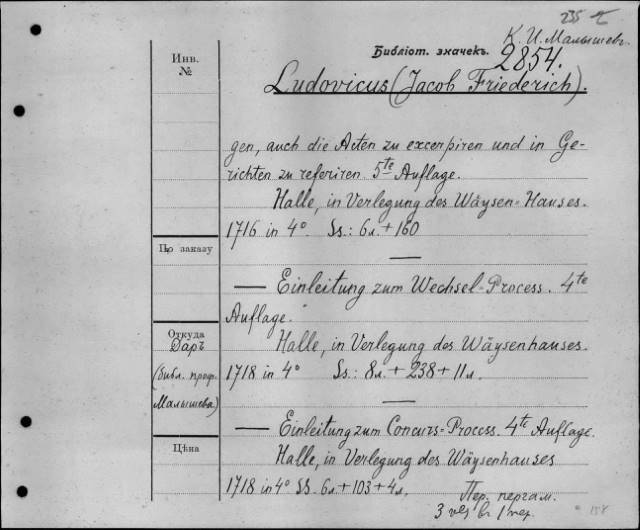 235
К. И. Малышевъ
Библіот. значекъ.
2854.
Инв.
№
Ludovicus (Jacob Friederich).
gen, auch die Acten zu excerpiren und in Ge-
richten zu referiren. 5te Auflage.
Halle, in Verlegung des Wäysen-Hauses.
1716 in 4° Ss.: 6л.+160
По заказу
— Einleitung zum Wechsel-Process. 4te
Auflage.
Откуда
Даръ
Halle, in Verlegung des Wäysenhauses.
(библ. проф.
1718 in 4° Ss.: 8л.+238+11л.
Малышева)
— Einleitung zum Concurs-Process. 4te Auflage.
Цѣна
Halle, in Verlegung des Wäysenhauses
1718 in 4° SS. 6л.+103+4л.
Пер. пергам.
3 въ 1 пер.
158